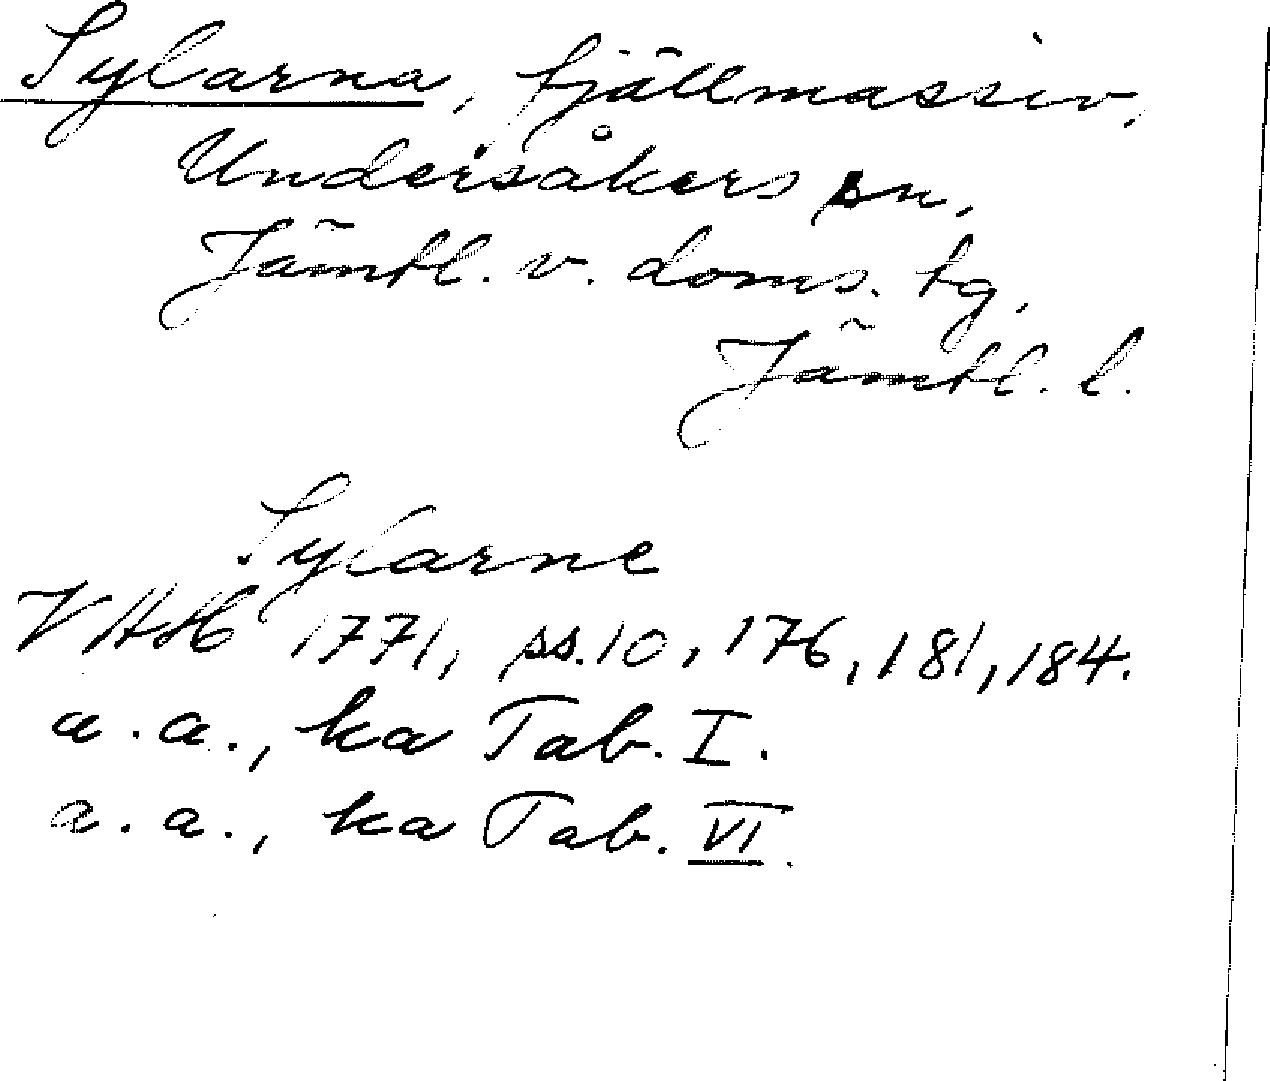 Sylarna, fjällmassiv,
Undersåkers sn,
Jämtl. v. doms. tg,
Jämtl. l.
Sylarne
VAH 1771, ss. 10, 176, 181, 184.
a. a., ka Tab. I.
a. a., ka Tab. VI.